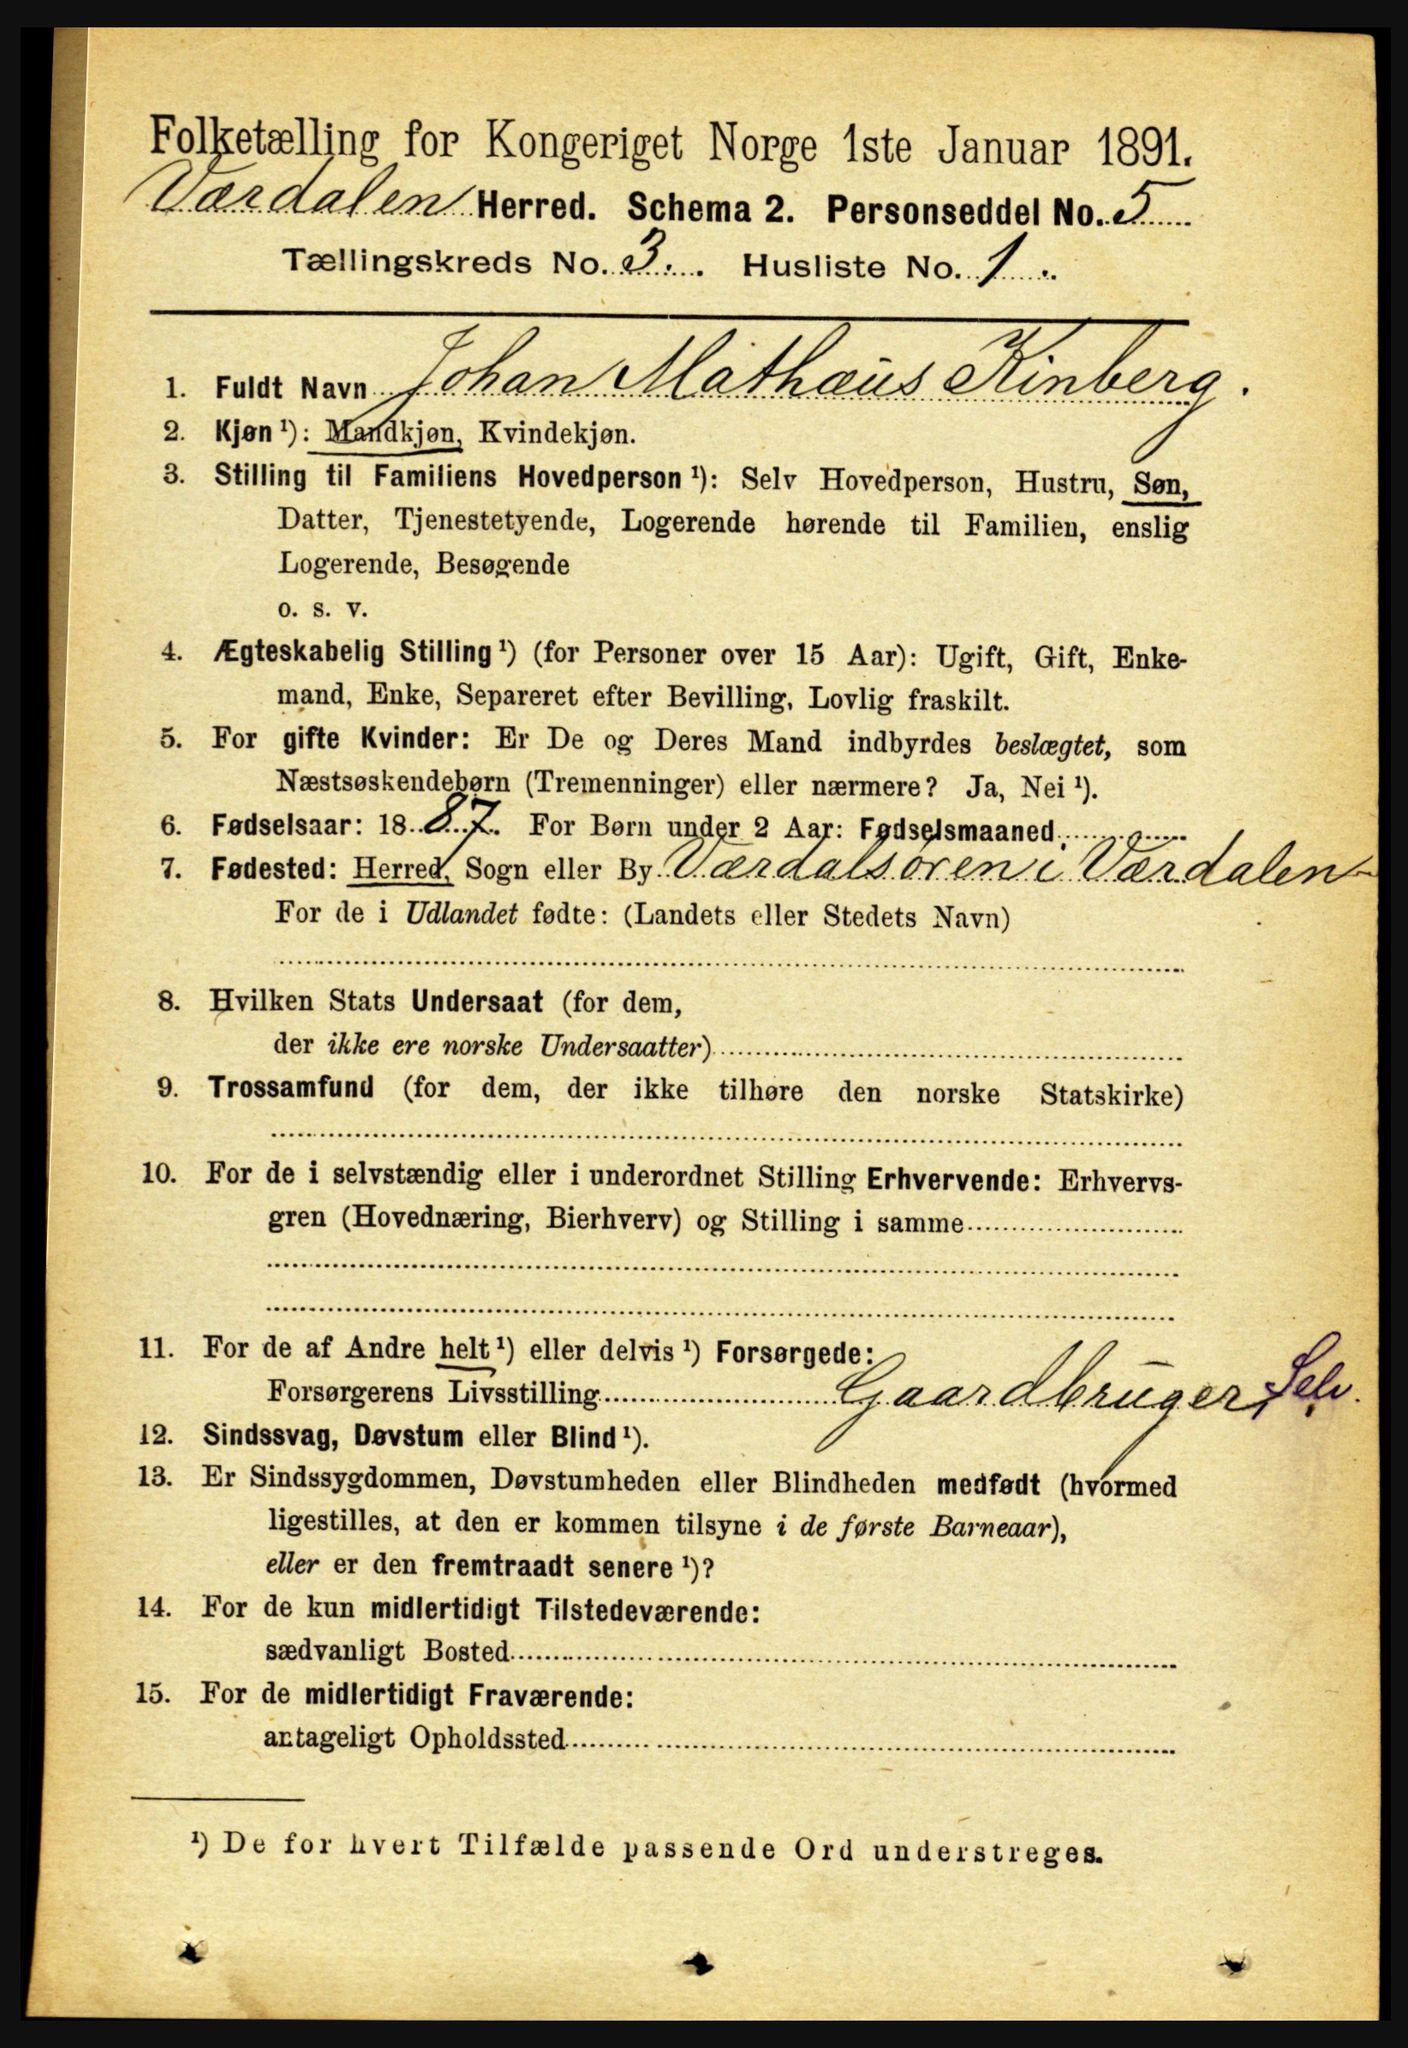 Folketælling for Kongeriget Norge 1ste Januar 1891.
Værdalen Herred. Schema 2. Personseddel No. 5
Tællingskreds No. 3. Husliste No. 1.
1. Fuldt Navn Johan Mathæus Kinberg.
2. Kjøn ¹): Mandkjøn, Kvindekjøn.
3. Stilling til Familiens Hovedperson ¹): Selv Hovedperson, Hustru, Søn,
Datter, Tjenestetyende, Logerende hørende til Familien, enslig
Logerende, Besøgende
o. s. v.
4. Ægteskabelig Stilling ¹) (for Personer over 15 Aar): Ugift, Gift, Enke-
mand, Enke, Separeret efter Bevilling, Lovlig fraskilt.
5. For gifte Kvinder: Er De og Deres Mand indbyrdes beslægtet, som
Næstsøskendebørn (Tremenninger) eller nærmere? Ja, Nei ¹).
6. Fødselsaar: 1887. For Børn under 2 Aar: Fødselsmaaned
7. Fødested: Herred, Sogn eller By Værdalsøren i Værdalen
For de i Udlandet fødte: (Landets eller Stedets Navn)
8. Hvilken Stats Undersaat (for dem,
der ikke ere norske Undersaatter)
9. Trossamfund (for dem, der ikke tilhøre den norske Statskirke)
10. For de i selvstændig eller i underordnet Stilling Erhvervende: Erhvervs-
gren (Hovednæring, Bierhverv) og Stilling i samme
11. For de af Andre helt ¹) eller delvis ¹) Forsørgede:
Forsørgerens Livsstilling Gaardbruger, Selv.
12. Sindssvag, Døvstum eller Blind ¹).
13. Er Sindssygdommen, Døvstumheden eller Blindheden medfødt (hvormed
ligestilles, at den er kommen tilsyne i de første Barneaar),
eller er den fremtraadt senere ¹)?
14. For de kun midlertidigt Tilstedeværende:
sædvanligt Bosted
15. For de midlertidigt Fraværende:
antageligt Opholdssted
¹) De for hvert Tilfælde passende Ord understreges.